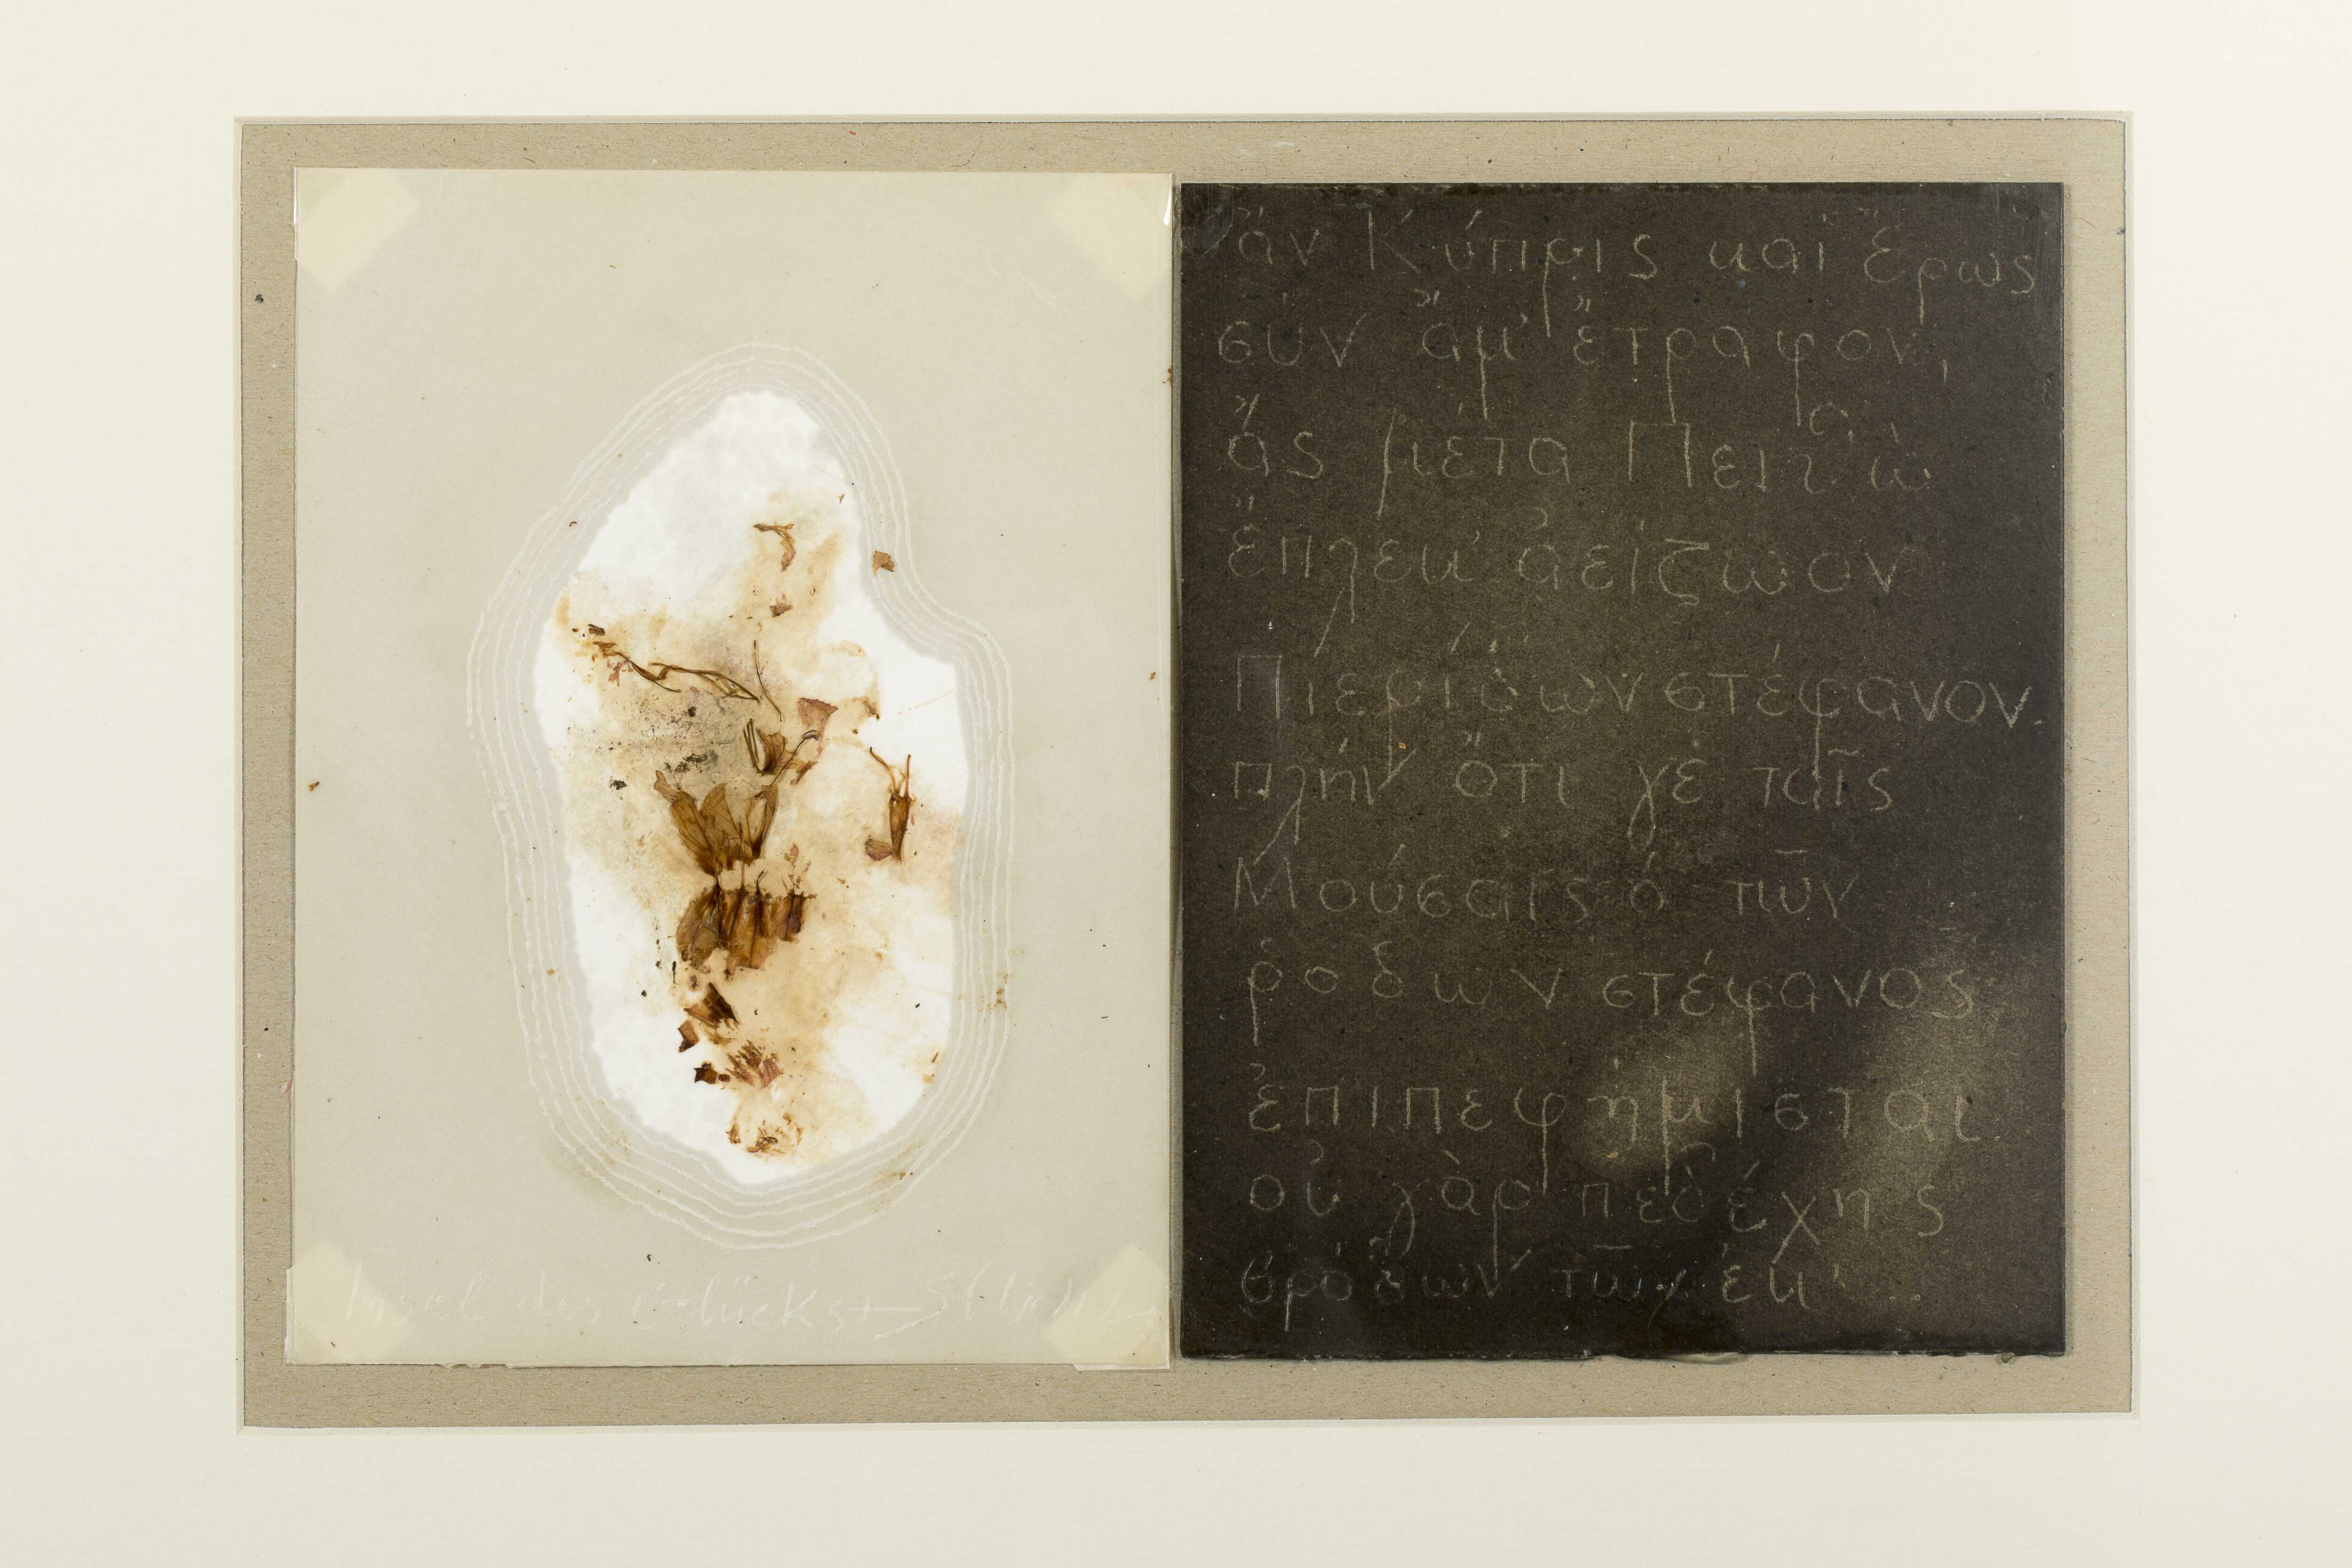 Insel des Glücks
ἁν Κύπρις καὶ Ἔρως
σὺν ἅμ' ἔτραφον,
ἇς μέτα Πειθὼ
ἔπλεκ' ἀείζωον
Πιερίδων στέφανον.
πλὴν ὅτι γε ταῖς
Μούσαις ὁ τῶν
ῥόδων στέφανος
ἐπιπεφήμισται
οὐ γὰρ πεδέχῃς
βρόδων τῶν ἐκ